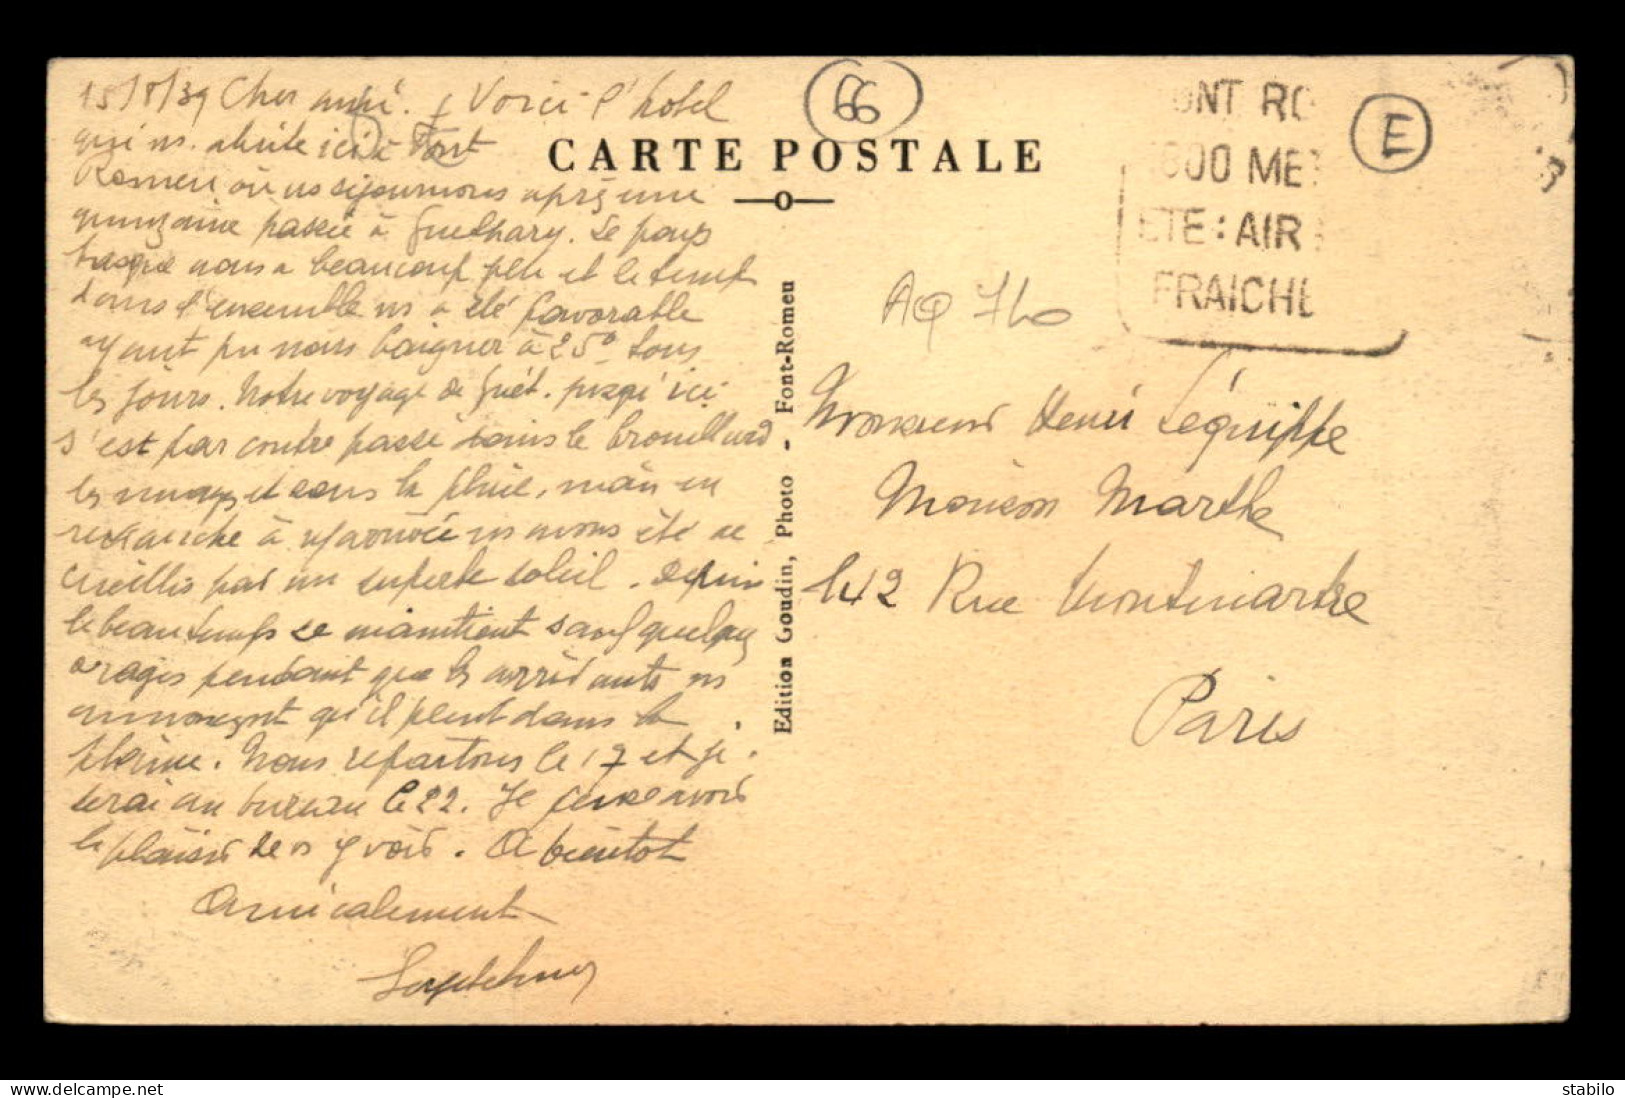 15/8/39 Cher ami. Voici l'hotel
qui ns. abrite ici à Font
Romeu où ns séjournons après une
quinzaine passée à Guethary. Le pays
basque nous a beaucoup plu et le temps
dans l'ensemble ns a été favorable
ayant pu nous baigner à 25° tous
les jours. Notre voyage de Guét. jusqu'ici
s'est par contre passé dans le brouillard
les nuages et sous la pluie, mais en
revanche à n/arrivée ns avons été ac
cueillis par un superbe soleil. Depuis
le beau temps se maintient sauf quelques
orages pendant que les arrivants ns
annoncent qu'il pleut dans la
plaine. Nous repartons le 17 et je
serai au bureau le 22. Je pense avoir
le plaisir de vs y voir. A bientot
Amicalement
66
CARTE POSTALE
Edition Goudin, Photo - Font-Romeu
ONT RO
800 ME
ETE: AIR
FRAICHE
E
AQ 740
Monsieur Henri Léquippe
Maison Marthe
142 Rue Montmartre
Paris
stabilo
https://www.delcampe.net